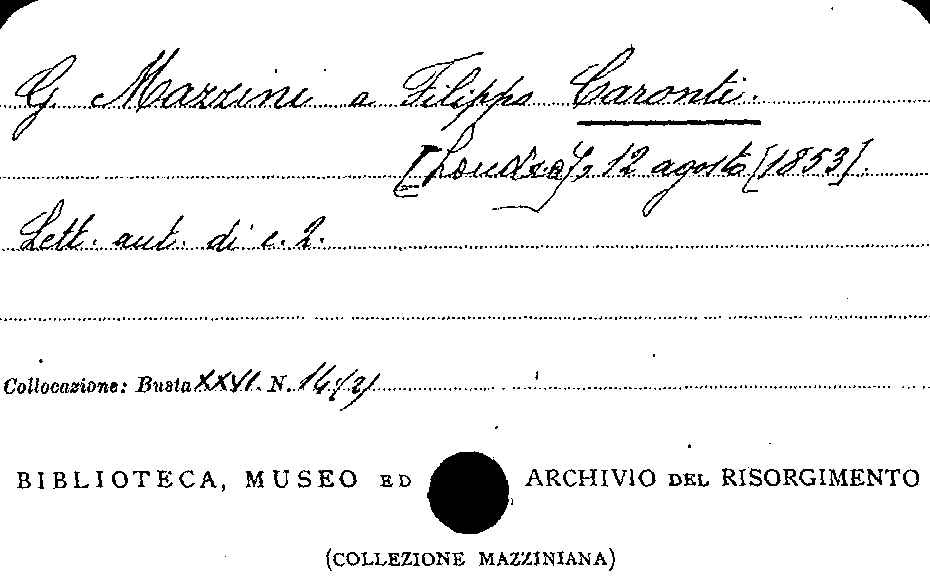 G Mazzini a Filippo Caronti.
[Londra], 12 agosto [1853].
Lett. aut. di c. 2.
Collocazione: Busta XXVI. N. 14 (2)
BIBLIOTECA, MUSEO ED ARCHIVIO DEL RISORGIMENTO
(COLLEZIONE MAZZINIANA)